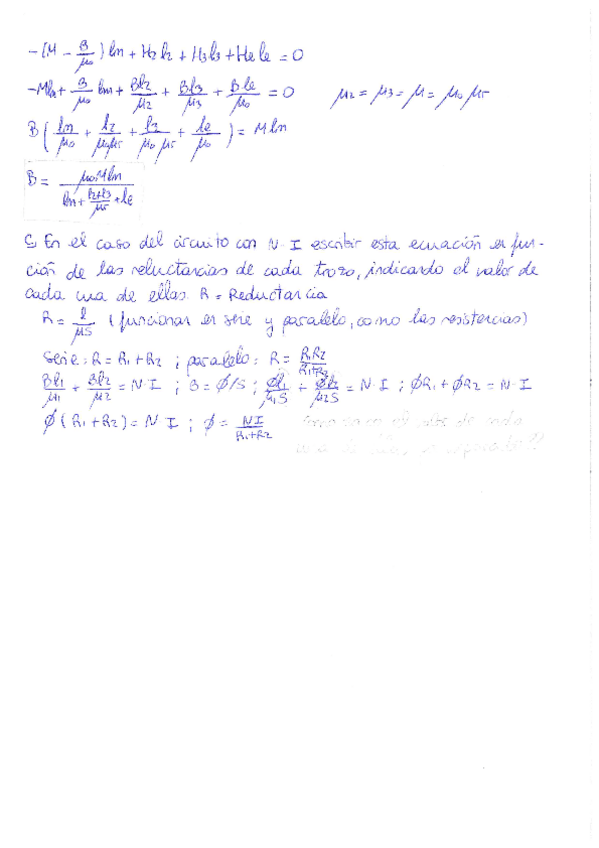 -(M - B/μ0) lm + H2l2 + H3l3 + Hele = 0
-Mlm + B/μ0 lm + Bl2/μ2 + Bl3/μ3 + Ble/μ0 = 0 μ2 = μ3 = μ = μ0 μr
B ( lm/μ0 + l2/μ0μr + l3/μ0 μr + le/μ0 ) = M lm
B = μ0 M lm / (lm + (l2+l3)/μr + le)
C. En el caso del circuito con N·I escribir esta ecuación en fun-
ción de las reluctancias de cada trozo, indicando el valor de
cada una de ellas. R = Reductancia
R = l/μS (funcionan en serie y paralelo, como las resistencias)
Serie: R = R1 + R2 ; paralelo: R = R1R2/(R1+R2)
Bl1/μ1 + Bl2/μ2 = N·I ; B = Ø/S ; Øl1/μ1S + Øl2/μ2S = N·I ; ØR1 + ØR2 = N·I
Ø(R1+R2) = N·I ; Ø = NI/(R1+R2) el de cada